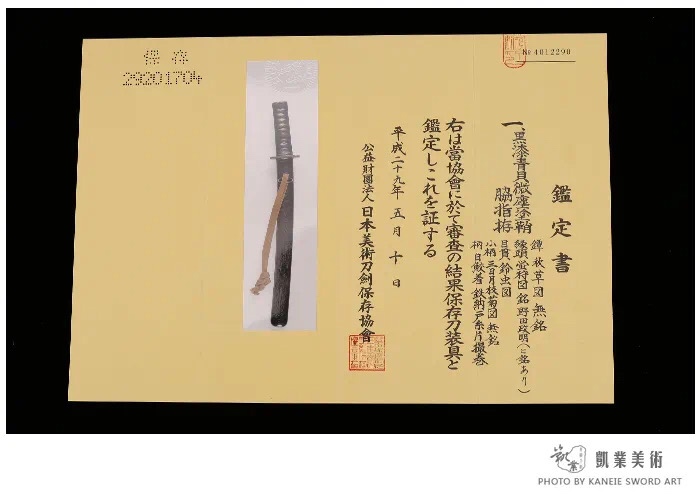 保存
29201704
№ 4012290
鑑定書
一、黒漆青貝微塵塗鞘
脇指拵
鐔 秋草図 無銘
縁頭 蛍狩図 銘 野田政明(に銘あり)
目貫 鈴虫図
小柄 三日月枝菊図 無銘
柄 白鮫着 鉄納戸糸片撮巻
右は當協會に於て審査の結果保存刀装具と
鑑定しこれを証する
平成二十九年五月十日
公益財團法人 日本美術刀劍保存協會
凱業美術
PHOTO BY KANEIE SWORD ART